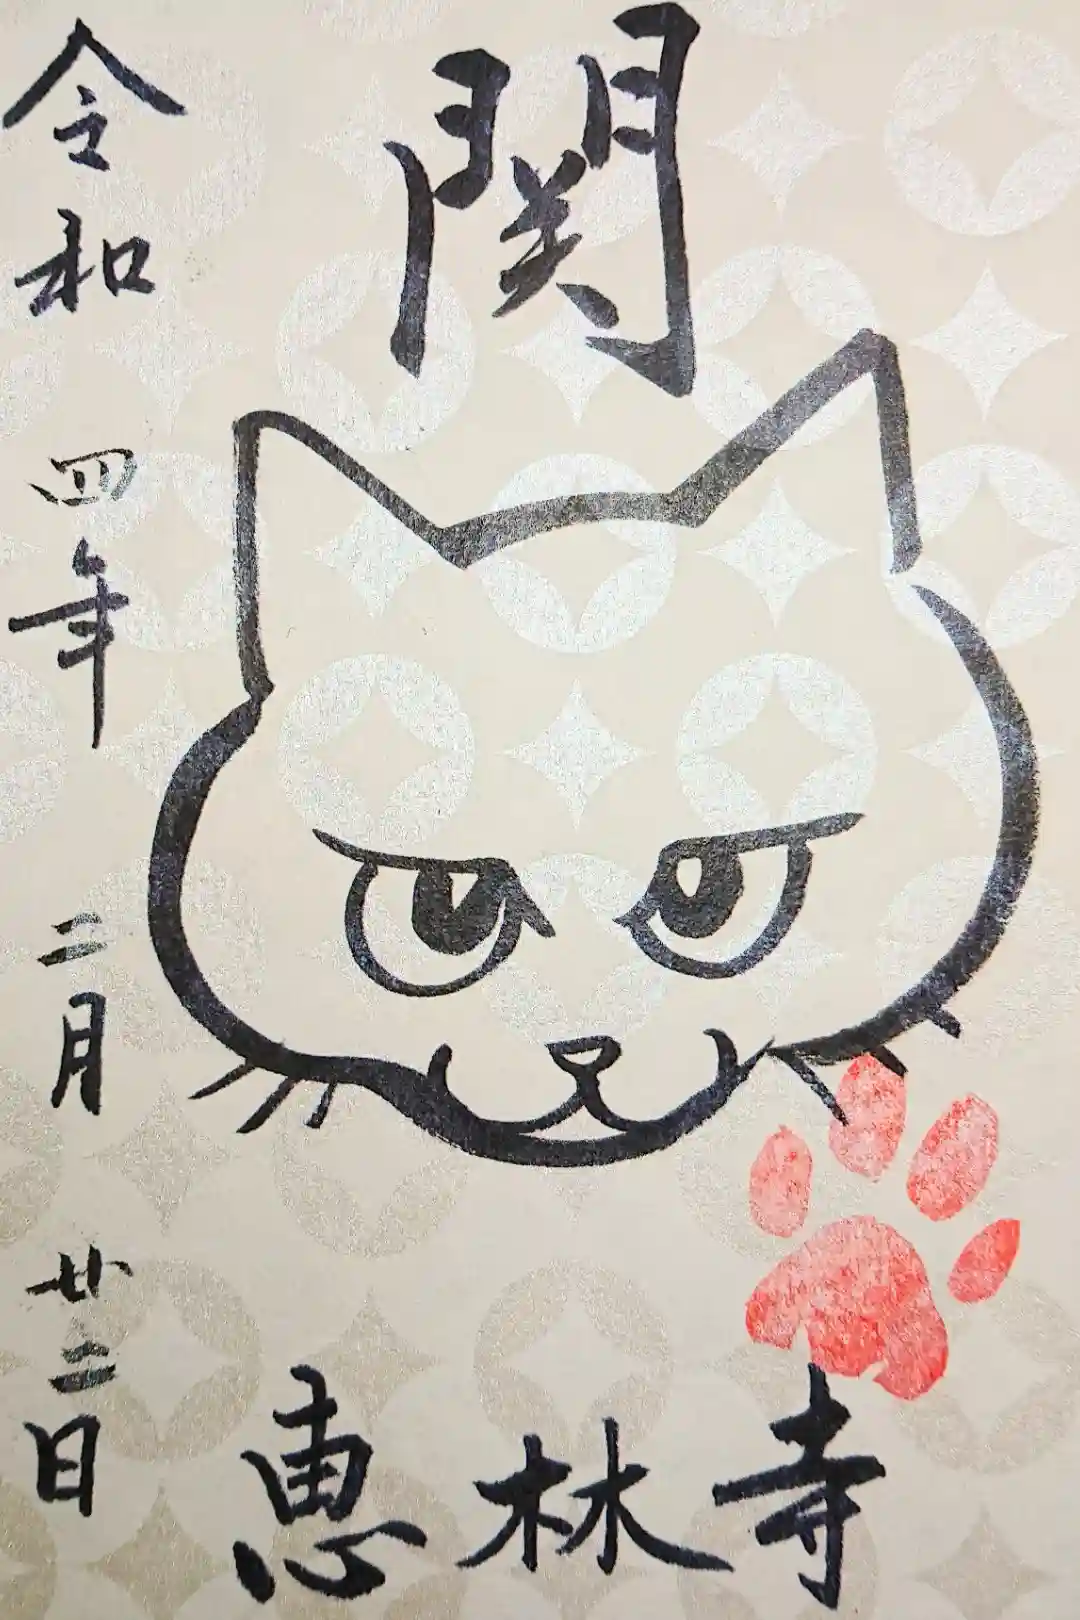 関
令和四年二月廿三日
恵林寺